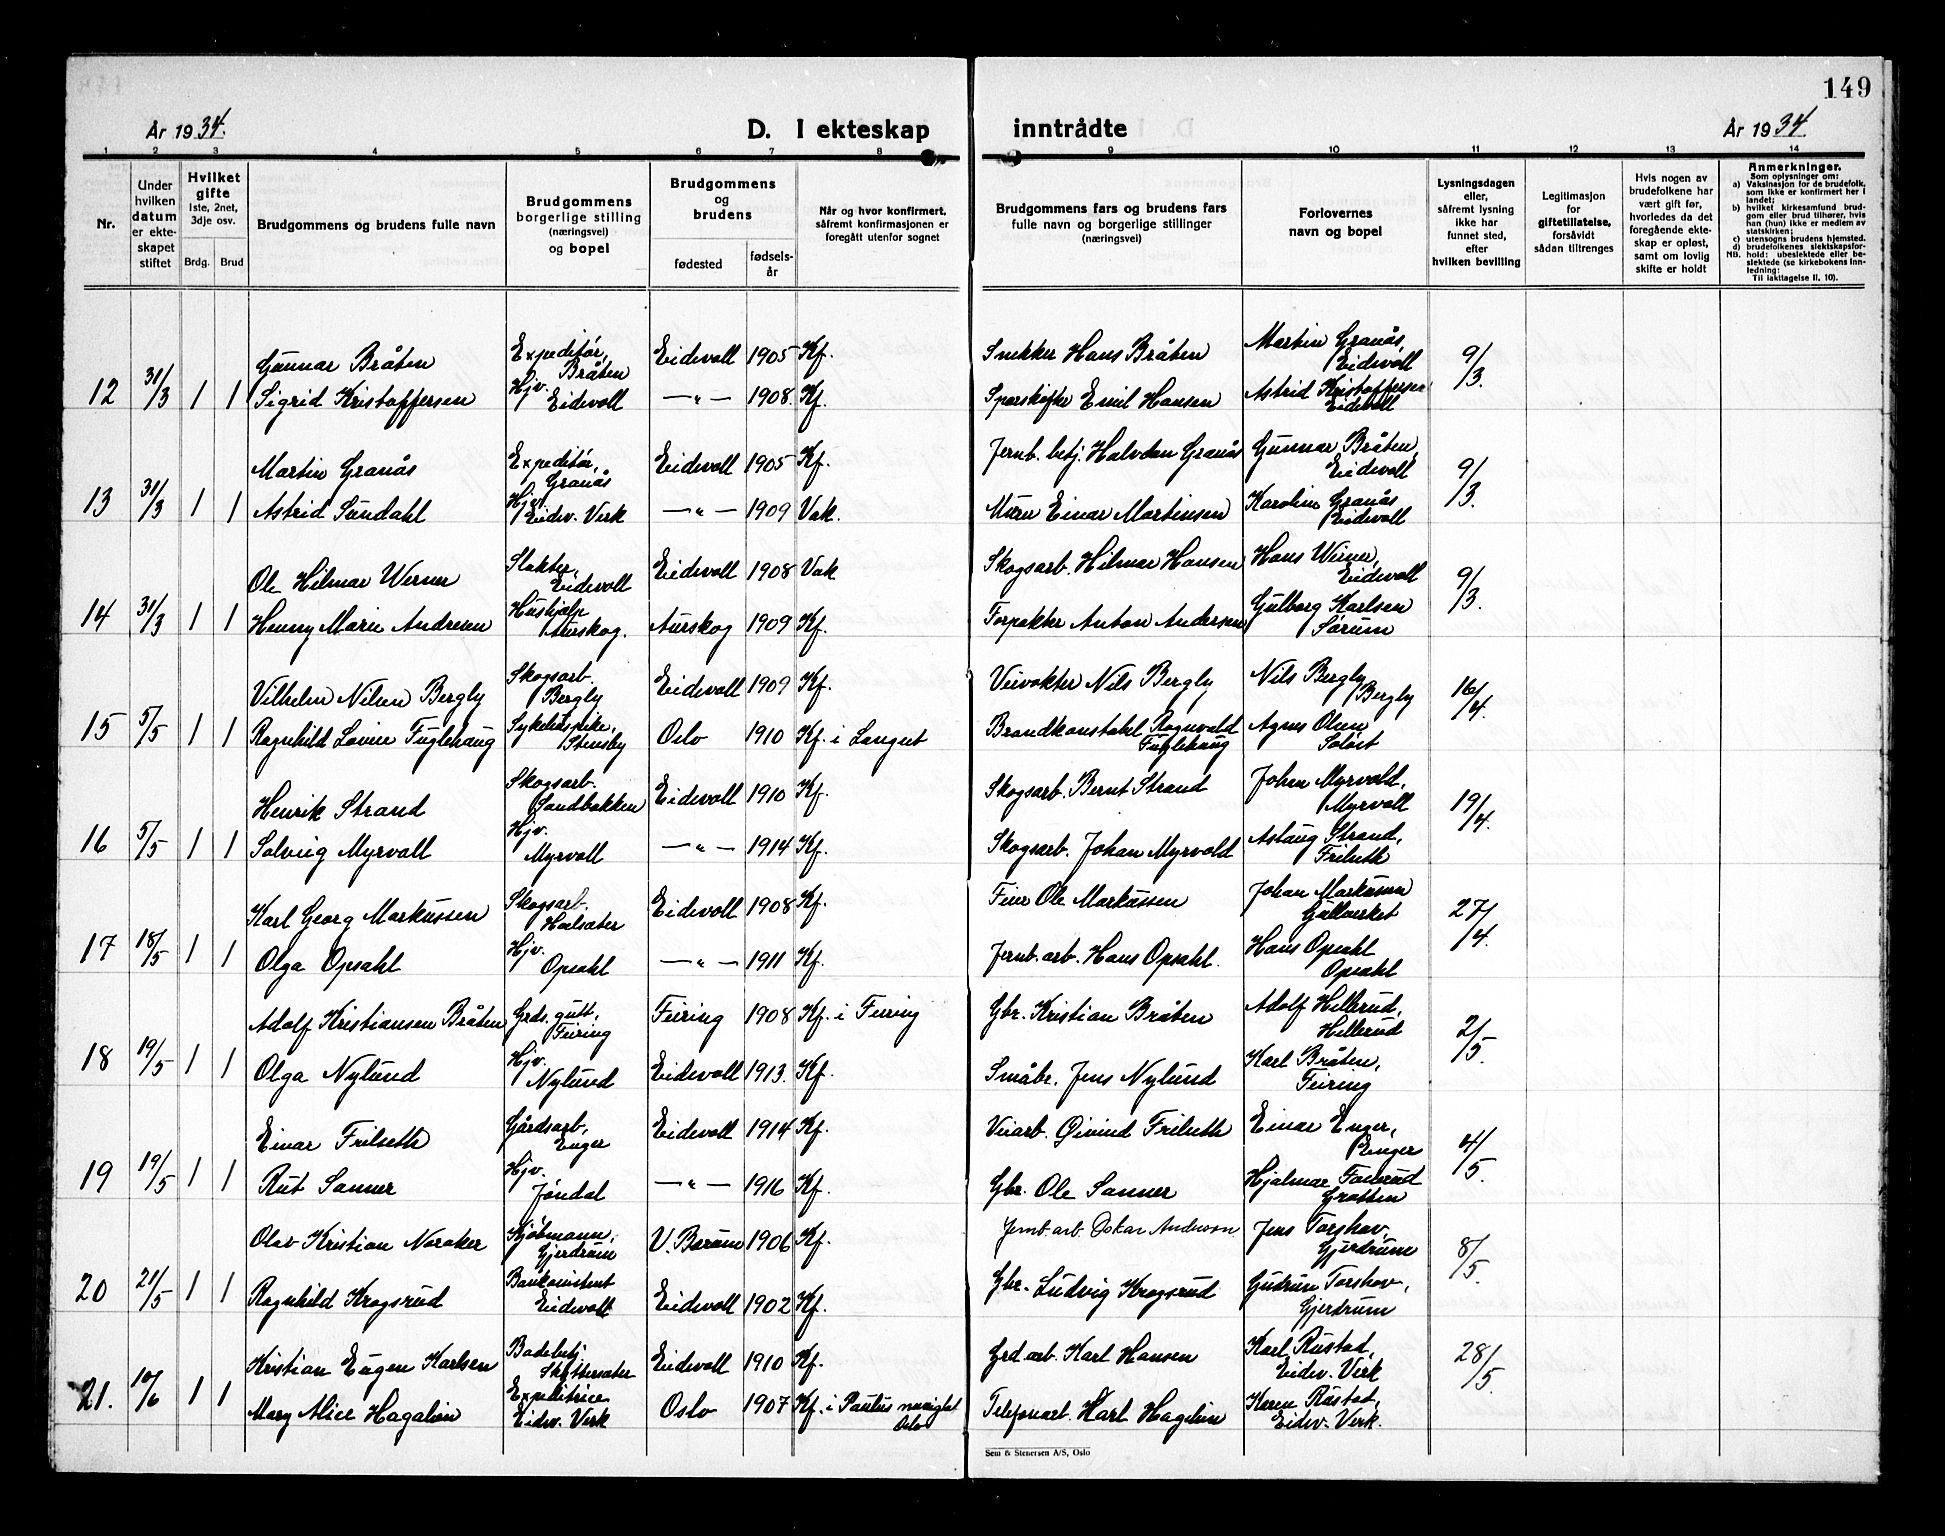 149
År 1934.
D. I ekteskap inntrådte
År 1934.
1 2 3 4 5 6 7 8 9 10 11 12 13 14
Nr.
Under hvilken datum er ekteskapet stiftet
Hvilket gifte
1ste, 2net, 3dje osv.
Brdg. Brud
Brudgommens og brudens fulle navn
Brudgommens borgerlige stilling (næringsvei) og bopel
Brudgommens og brudens
fødested
fødselsår
Når og hvor konfirmert, såfremt konfirmasjonen er foregått utenfor sognet
Brudgommens fars og brudens fars fulle navn og borgerlige stillinger (næringsvei)
Forlovernes navn og bopel
Lysningsdagen eller, såfremt lysning ikke har funnet sted, efter hvilken bevilling
Legitimasjon for giftetillatelse, forsåvidt sådan tiltrenges
Hvis nogen av brudefolkene har vært gift før, hvorledes da det foregående ekteskap er opløst, samt om lovlig skifte er holdt
Anmerkninger.
Som oplysninger om:
a) Vaksinasjon for de brudefolk, som ikke er konfirmert her i landet;
b) hvilket kirkesamfund brudgom eller brud tilhører, hvis han (hun) ikke er medlem av statskirken;
c) utensogns brudens hjemsted.
d) brudefolkenes slektskapsforhold: ubeslektede eller beslektede (se kirkebokens innledning:
NB.
Til iakttagelse II, 10).
12 31/3 1 1
Gunnar Bråten Expeditør, Bråten Eidsvoll 1905 Kf. Snekker Hans Bråten Martin Granås, Eidsvoll 9/3.
Sigrid Kristoffersen Hjv. Eidsvoll —"— 1908. Kf. Emil Hansen Astrid Kristoffersen Eidsvoll
13 31/3 1 1
Martin Granås Expeditør, Granås Eidsvoll 1905 Kf. Jernb. betj. Halvdan Granås Gunnar Bråten, Eidsvoll 9/3.
Astrid Sundahl Hjv. Eidsv. Verk —"— 1909 Vak. Murer Einar Martinsen Karoline Granås Eidsvoll
14 31/3 1 1
Ole Hilmar Werner Slakter, Eidsvoll Eidsvoll 1908 Vak Skogsarb. Hilmar Hansen Hans Werner, Eidsvoll 9/3.
Henny Marie Andresen Hushjelp Aurskog. Aurskog 1909 Kf. Forpakter Anton Andersen Gulborg Karlsen Sørum
15 5/5 1 1
Vilhelm Nilsen Bergly Skogsarb. Bergly Eidsvoll 1909 Kf. Veivokter Nils Bergly Nils Bergly Bergly 16/4.
Ragnhild Lovise Fuglehaug Sykepleierske, Stensby Oslo 1910 Kf. i Langset Brandkonstabel Ragnvald Fuglehaug Agnes Olsen
16 5/5 1 1
Henrik Strand Skogsarb. Sandbakken Eidsvoll 1910 Kf. Skogsarb. Bernt Strand Johan Myrvold, Myrvoll 19/4.
Solveig Myrvoll Hjv. Myrvoll —"— 1914 Kf. Skogsarb. Johan Myrvold Aslaug Strand, Frilseth
17 18/5 1 1
Karl Georg Markussen Skogsarb. Eidsvoll 1908 Kf. Feier Ole Markussen Johan Markussen Gullverket 27/4.
Olga Opsahl Hjv. Opsahl —"— 1911 Kf. Jernb. arb. Hans Opsahl. Hans Opsahl Opsahl
18 19/5 1 1
Adolf Kristiansen Bråten Grds. gutt, Feiring Feiring 1908 Kf. i Feiring Gbr. Kristian Bråten Adolf Hellerud, Hellerud 2/5.
Olga Nylund Hjv. Nylund Eidsvoll 1913. Kf. Småbr. Jens Nylund Karl Bråten, Feiring
19 19/5 1 1
Einar Frilseth Gårdsarb, Enger Eidsvoll 1914 Kf. Veiarb. Øivind Frilseth Einar Enger, Enger 4/5.
Rut Sanner Hjv. Jøndal —"— 1916 Kf. Gbr. Ole Sanner Hjalmar
20 21/5 1 1
Olav Kristian Noraker Kjøbmann, Gjerdrum V. Bærum 1906 Kf. Jernb. arb. Oskar Anderson Jens Torshov, Gjerdrum 8/5.
Ragnhild Krogsrud Bankassistent Eidsvoll Eidsvoll 1902 Kf. Gbr. Ludvig Krogsrud Gudrun Torshov, Gjerdrum
21. 10/6 1 1
Kristian Eugen Karlsen Badebetj. Eidsvoll 1910 Kf. Grd. arb. Karl Hansen Karl Rustad, Eidsv. Verk 28/5.
Mary Alice Hagelin Expeditrice Eidsv. Verk Oslo 1907 Kf. i Paulus menighet Oslo Telefonarb. Karl Hagelin Karen Rustad, Eidsv. Verk.
Sem & Stenersen A/S, Oslo